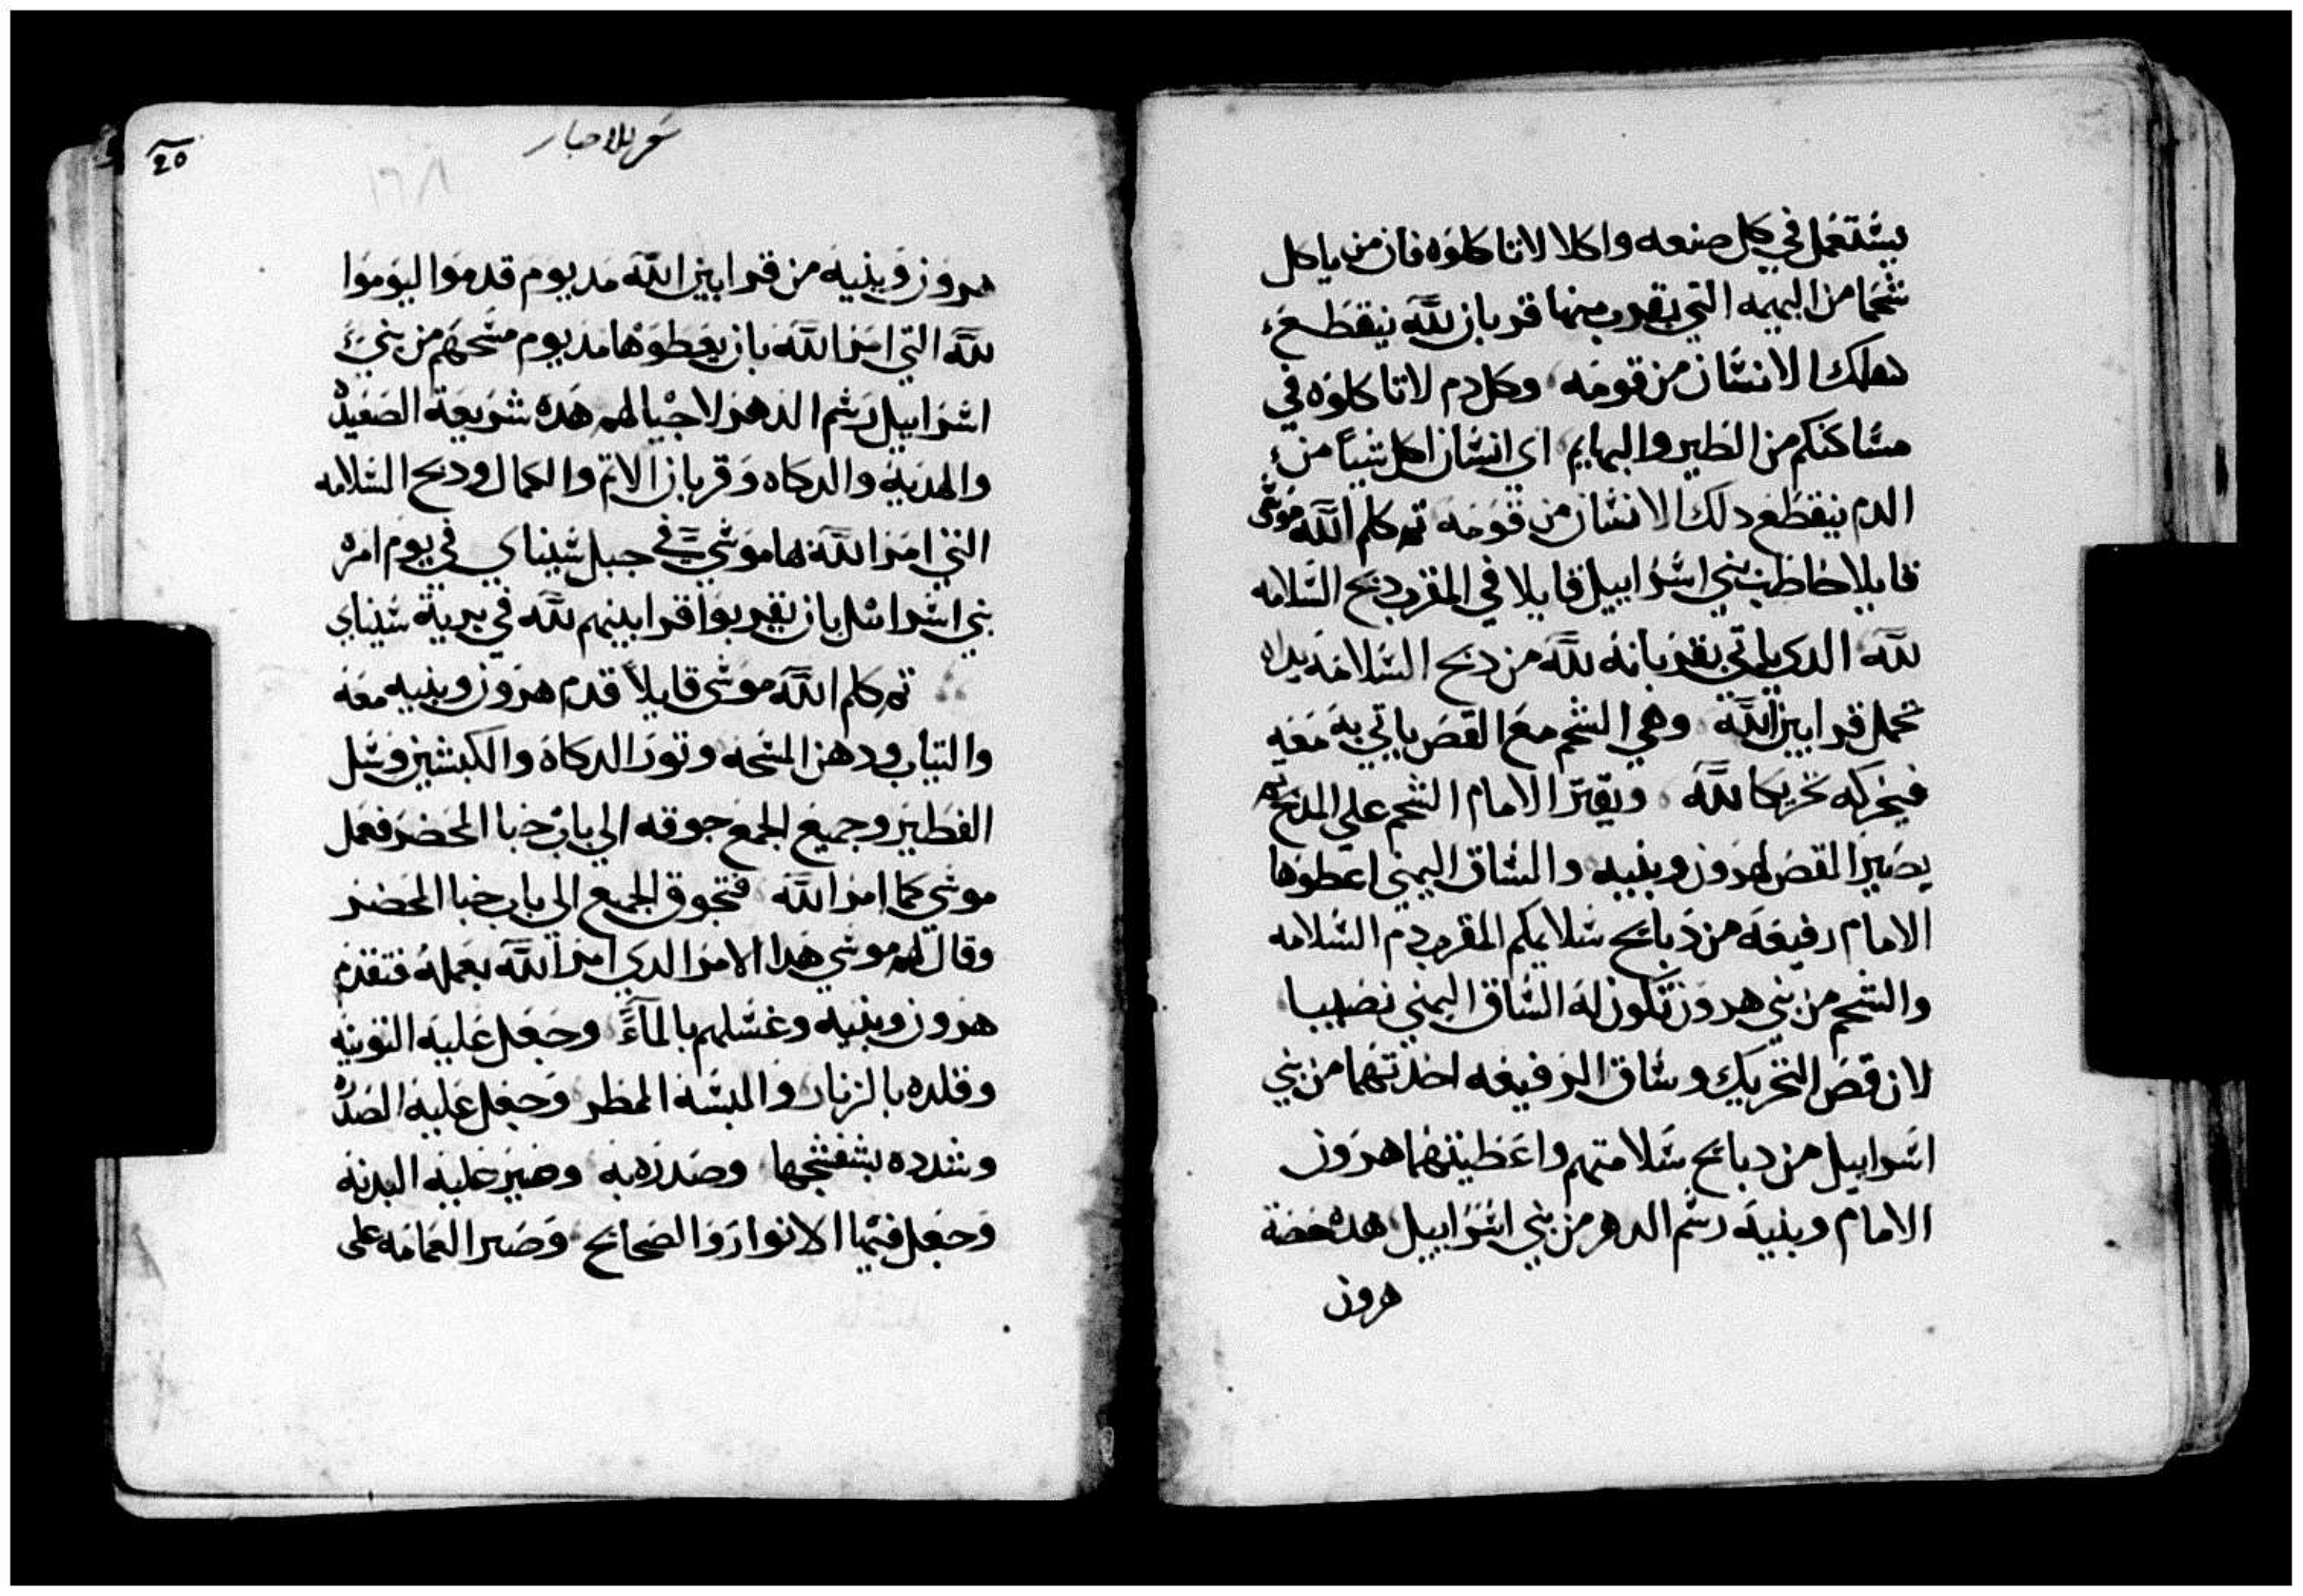 يستعمل في كل صنعه واكلا لا تاكلوه فان من ياكل
شحما من البهيمه التي يقرب منها قربان لله ينقطع
دلك الانسان من قومه وكل دم لا تاكلوه في
مساكنكم من الطير والبهايم اي انسان اكل شيا من
الدم ينقطع دلك الانسان من قومه تم كلم الله موسى
قايلا خاطب بني اسراييل قايلا في المقرب دبح السلامه
لله الدي ياتي بقربانه لله من دبح السلامه يداه
تحمل قرابين الله وهي الشحم مع القص ياتي به معه
فيحركه تحريكا لله ويقتر الامام الشحم علي المدبح تم
يصير القص لهرون وبنيه والساق اليمني اعطوها
الامام رفيعه من دبايح سلايمكم المقرب دم السلامه
والشحم من بني هرون تكون له الساق اليمني نصيبا
لان قص التحريك وساق الرفيعه اخدتهما من بني
اسراييل من دبايح سلامتهم واعطيتهما هرون
الامام وبنيه رسم الدهر من بني اسراييل هده حصة
هرون
سفر الاحبار
20
١٦٨
هرون وبنيه من قرابين الله مد يوم قدموا ليوموا
لله التي امر الله بان يعطوها مد يوم مسحهم من بني
اسراييل رسم الدهر لاجيالهم هده شريعة الصعيده
والهديه والدكاه وقربان الاتم والكمال ودبح السلامه
التي امر الله بها موسي في جبل سيناي في يوم امره
بني اسراييل بان يقربوا قرابينهم لله في برية سيناي
تم كلم الله موسى قايلا قدم هرون وبنيه معه
والتياب ودهن المسحه وتور الدكاه والكبشين وسل
الفطير وجميع الجمع جوقه الي باب خبا المحضر فعمل
موسي كما امر الله فتجوق الجميع الي باب خبا المحضر
وقال لهم موسي هدا الامر الدي امر الله بعمله فتقدم
هرون وبنيه وغسلهم بالماء وجعل عليه التونيه
وقلده بالزنار والبسه الممطر وجعل عليه الصدره
وشدده بشفشجها وصدره به وصير عليه البدنه
وجعل فيها الانوار والصحايح وصير العمامه على